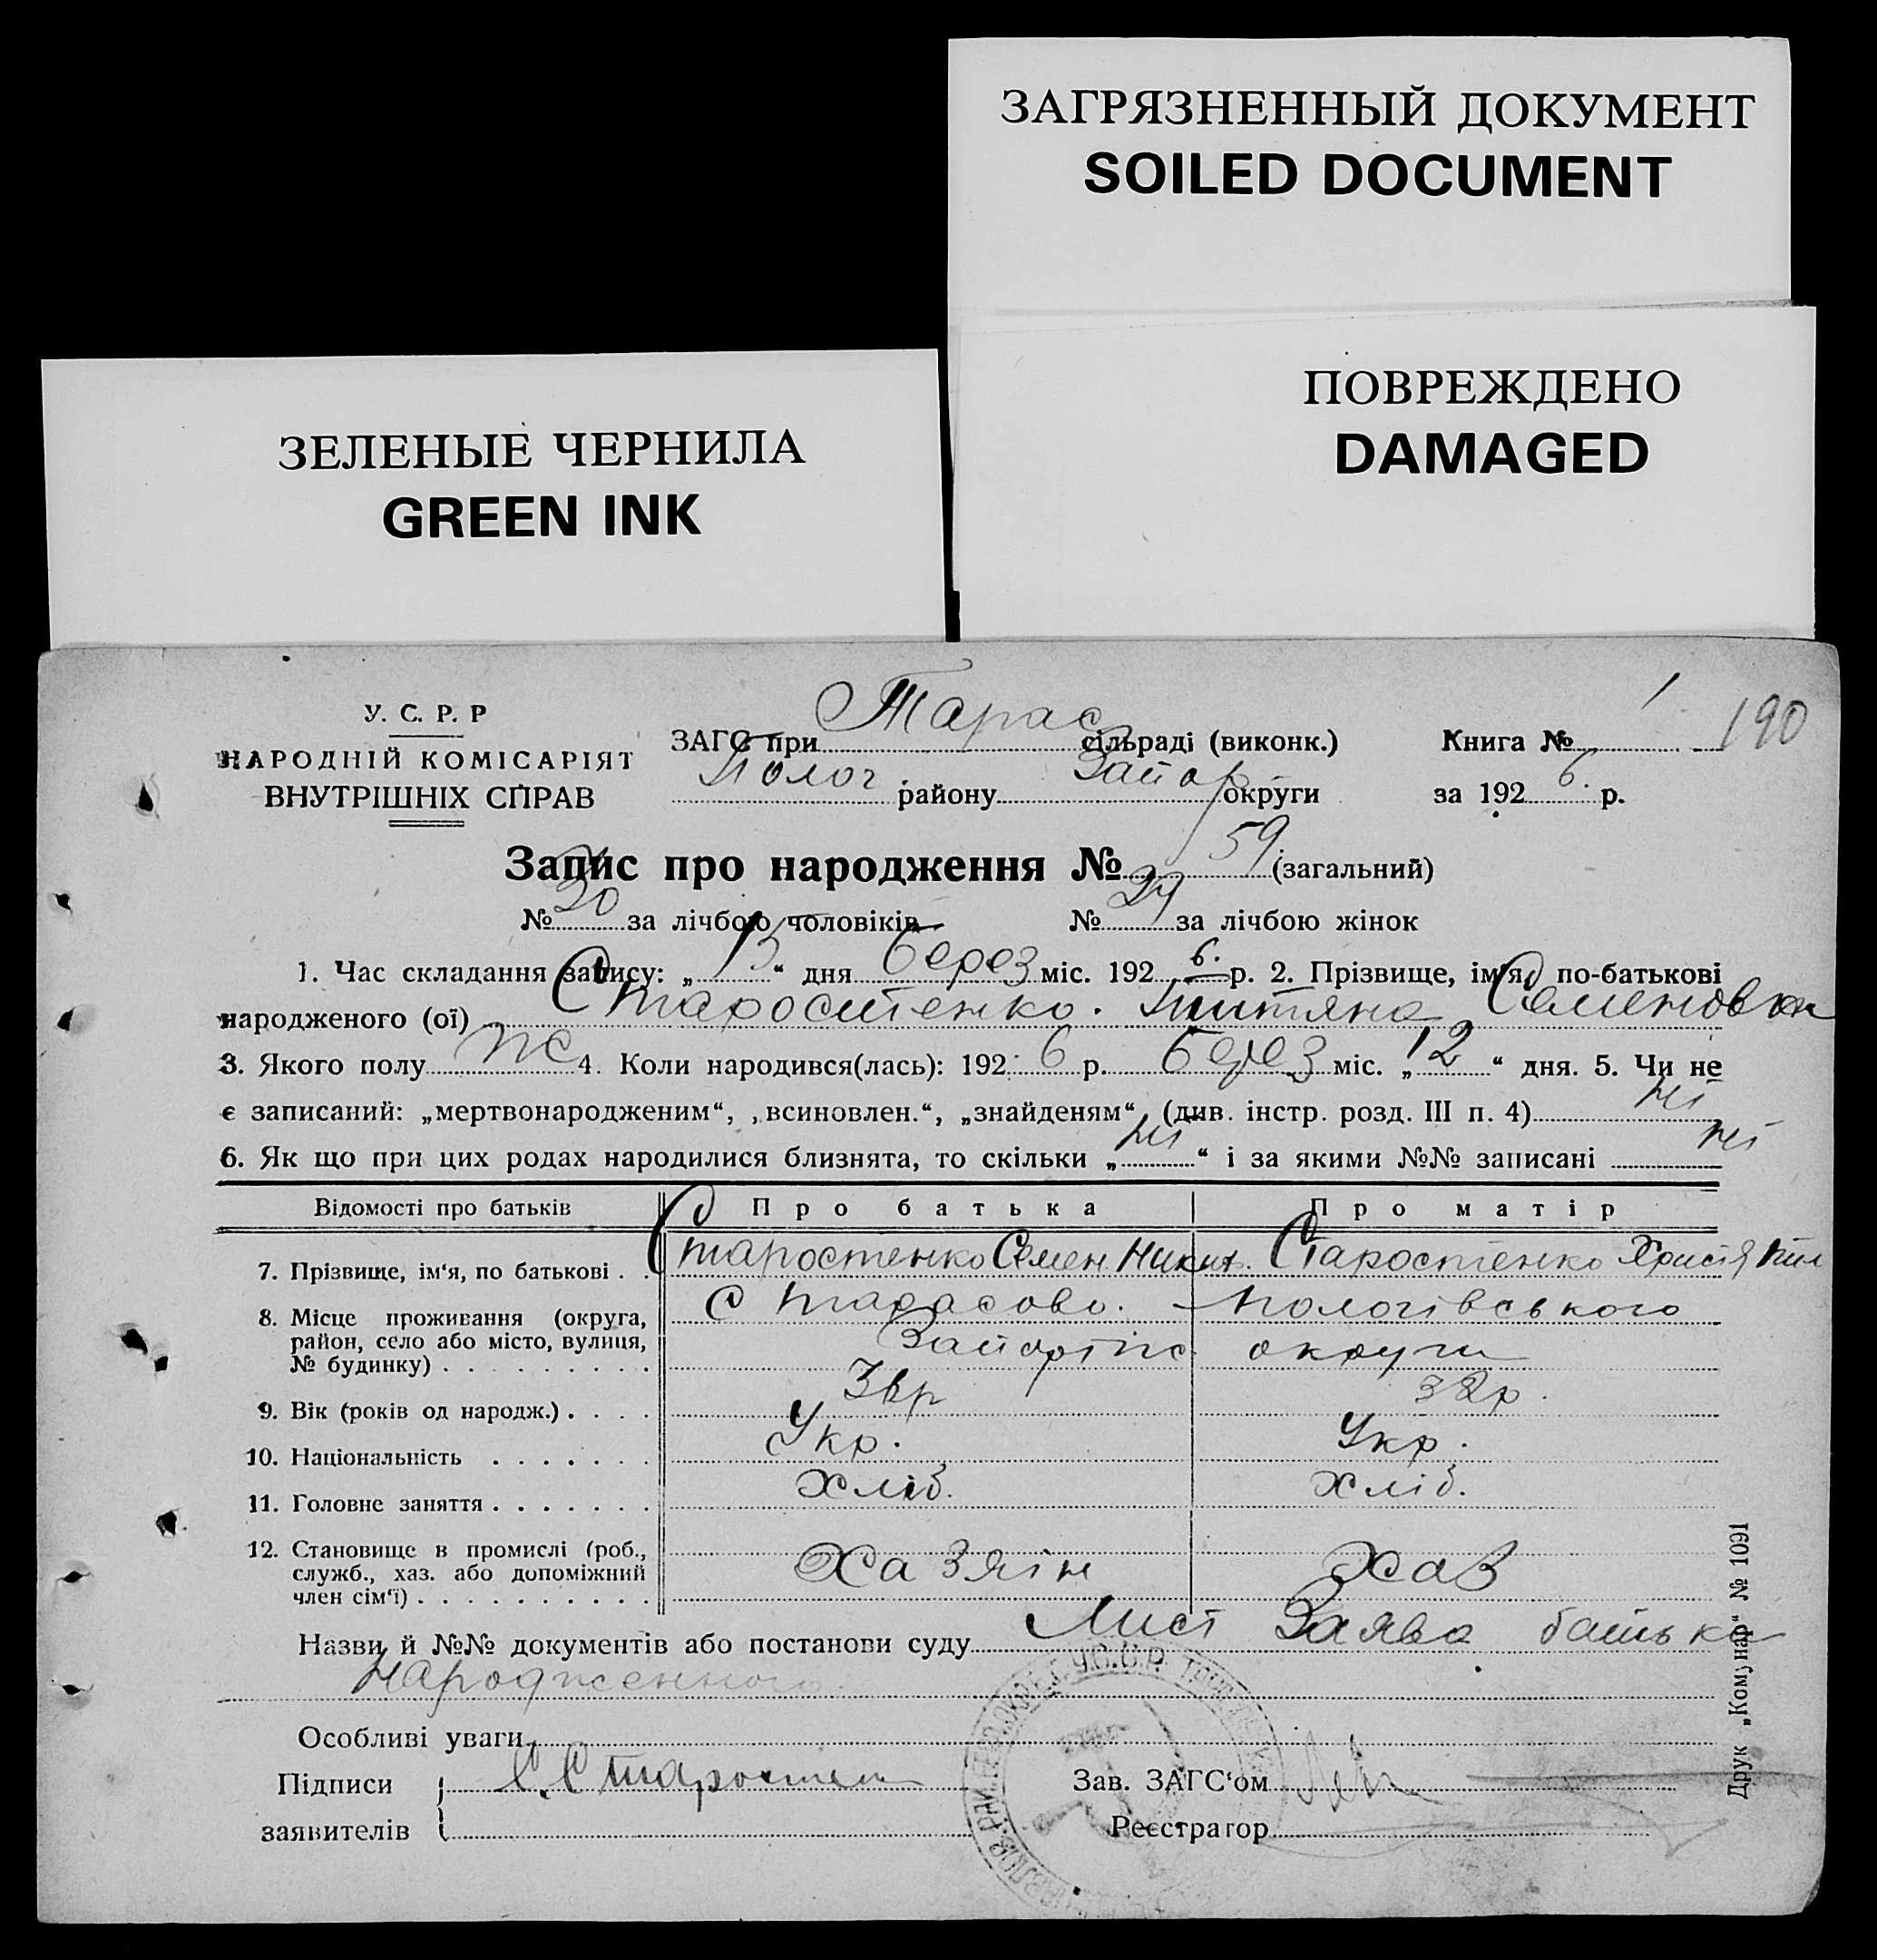 ЗАГРЯЗНЕННЫЙ ДОКУМЕНТ
SOILED DOCUMENT
ПОВРЕЖДЕНО
DAMAGED
ЗЕЛЕНЫЕ ЧЕРНИЛА
GREEN INK
У. С. Р. Р
НАРОДНІЙ КОМІСАРІЯТ
ВНУТРІШНІХ СПРАВ
ЗАГС при Тарас сільраді (виконк.) Книга № 1 190
Полог району Запор округи за 1926 р.
Запис про народження № 59 (загальний)
№ 30 за лічбою чоловіків № 29 за лічбою жінок
1. Час складання запису: „15“ дня Берез міс. 1926. р. 2. Прізвище, ім'я, по-батькові
народженого (ої) Старостенко. Титяна Семеновна
3. Якого полу ж 4. Коли народився(лась): 1926 р. Берез міс. „12“ дня. 5. Чи не
є записаний: „мертвонародженим“, „всиновлен.“, „знайденям“, (див. інстр. розд. III п. 4) ні
6. Як що при цих родах народилися близнята, то скільки „ні“ і за якими №№ записані ні
Відомості про батьків Про батька Про матір
7. Прізвище, ім'я, по батькові . . Старостенко Семен Никит. Старостенко Христя
8. Місце проживання (округа, район, село або місто, вулиця, № будинку) . . . . . . . . . с Тарасово. Пологівського
Запоріж округи
9. Вік (років од народж.) . . . .
10. Національність . . . . . . . Укр. Укр.
11. Головне заняття . . . . . . . Хліб. Хліб.
12. Становище в промислі (роб., служб., хаз. або допоміжний член сім'ї) . . . . . . . . . . Хазяін Хаз
Назви й №№ документів або постанови суду Лист Заява батька
народженного.
Особливі уваги
Підписи С. Старостен Зав. ЗАГС'ом
заявителів Реєстратор
Друк „Комунар“ № 1091